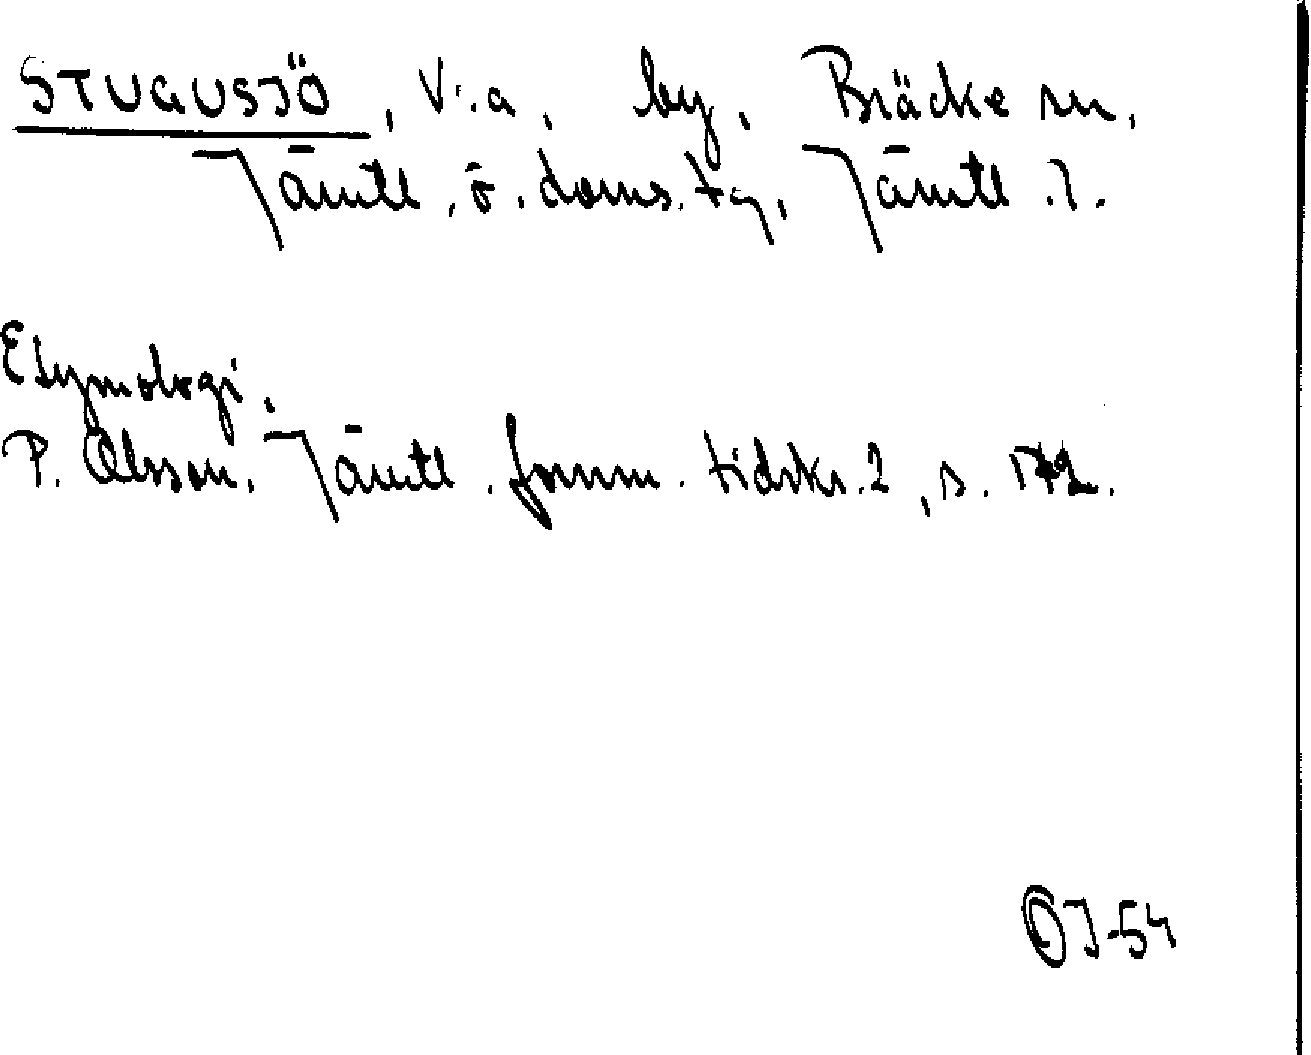 STUGUSJÖ, V:a, by, Bräcke sn,
Jämtl. ö. doms. tg, Jämtl. l.
Etymologi.
P. Olsson. Jämtl. fornm. tidskr. 2, s. 172.
OJ-54